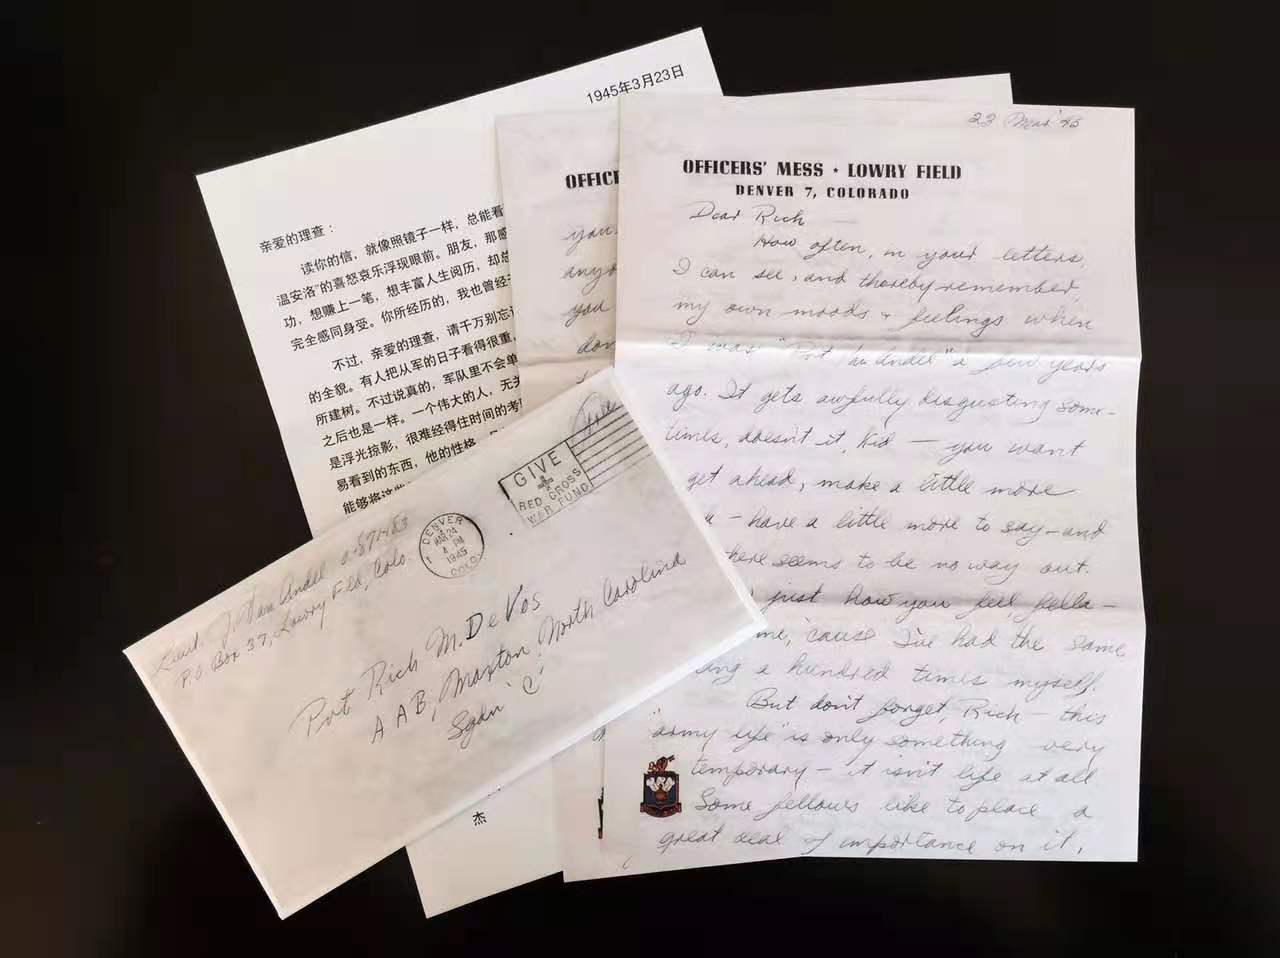 1945年3月23日
亲爱的理查：
读你的信，就像照镜子一样，总能看
温安洛"的喜怒哀乐浮现眼前。朋友，那感
功，想赚上一笔，想丰富人生阅历，却总
完全感同身受。你所经历的，我也曾经
不过，亲爱的理查，请千万别忘
的全貌。有人把从军的日子看得很重，
所建树。不过说真的，军队里不会单
之后也是一样。一个伟大的人，无关
是浮光掠影，很难经得住时间的考
易看到的东西，他的性格，
能够将这些
杰
OFFICE
you
anyo
you
don
22 Mar '45
OFFICERS' MESS · LOWRY FIELD
DENVER 7, COLORADO
Dear Rich —
How often, in your letters,
I can see, and thereby remember,
my own moods & feelings when
I was "Pvt Van Andel" a few years
ago. It gets awfully disgusting some-
times, doesn't it, kid — you want
get ahead, make a little more
- have a little more to say - and
there seems to be no way out.
just how you feel, fella -
me, 'cause I've had the same
ing a hundred times myself.
But don't forget, Rich - this
"army life" is only something very
temporary - it isn't life at all.
Some fellows like to place a
great deal of importance on it,
Lieut. J. Van Andel 0-871483
P.O. Box 37, Lowry Fld, Colo.
DENVER
1
MAR 24
4 PM
1945
COLO.
GIVE
RED CROSS
WAR FUND
Free
Pvt Rich M. DeVos
AAB, Maxton, North Carolina
Sqdn 'C'